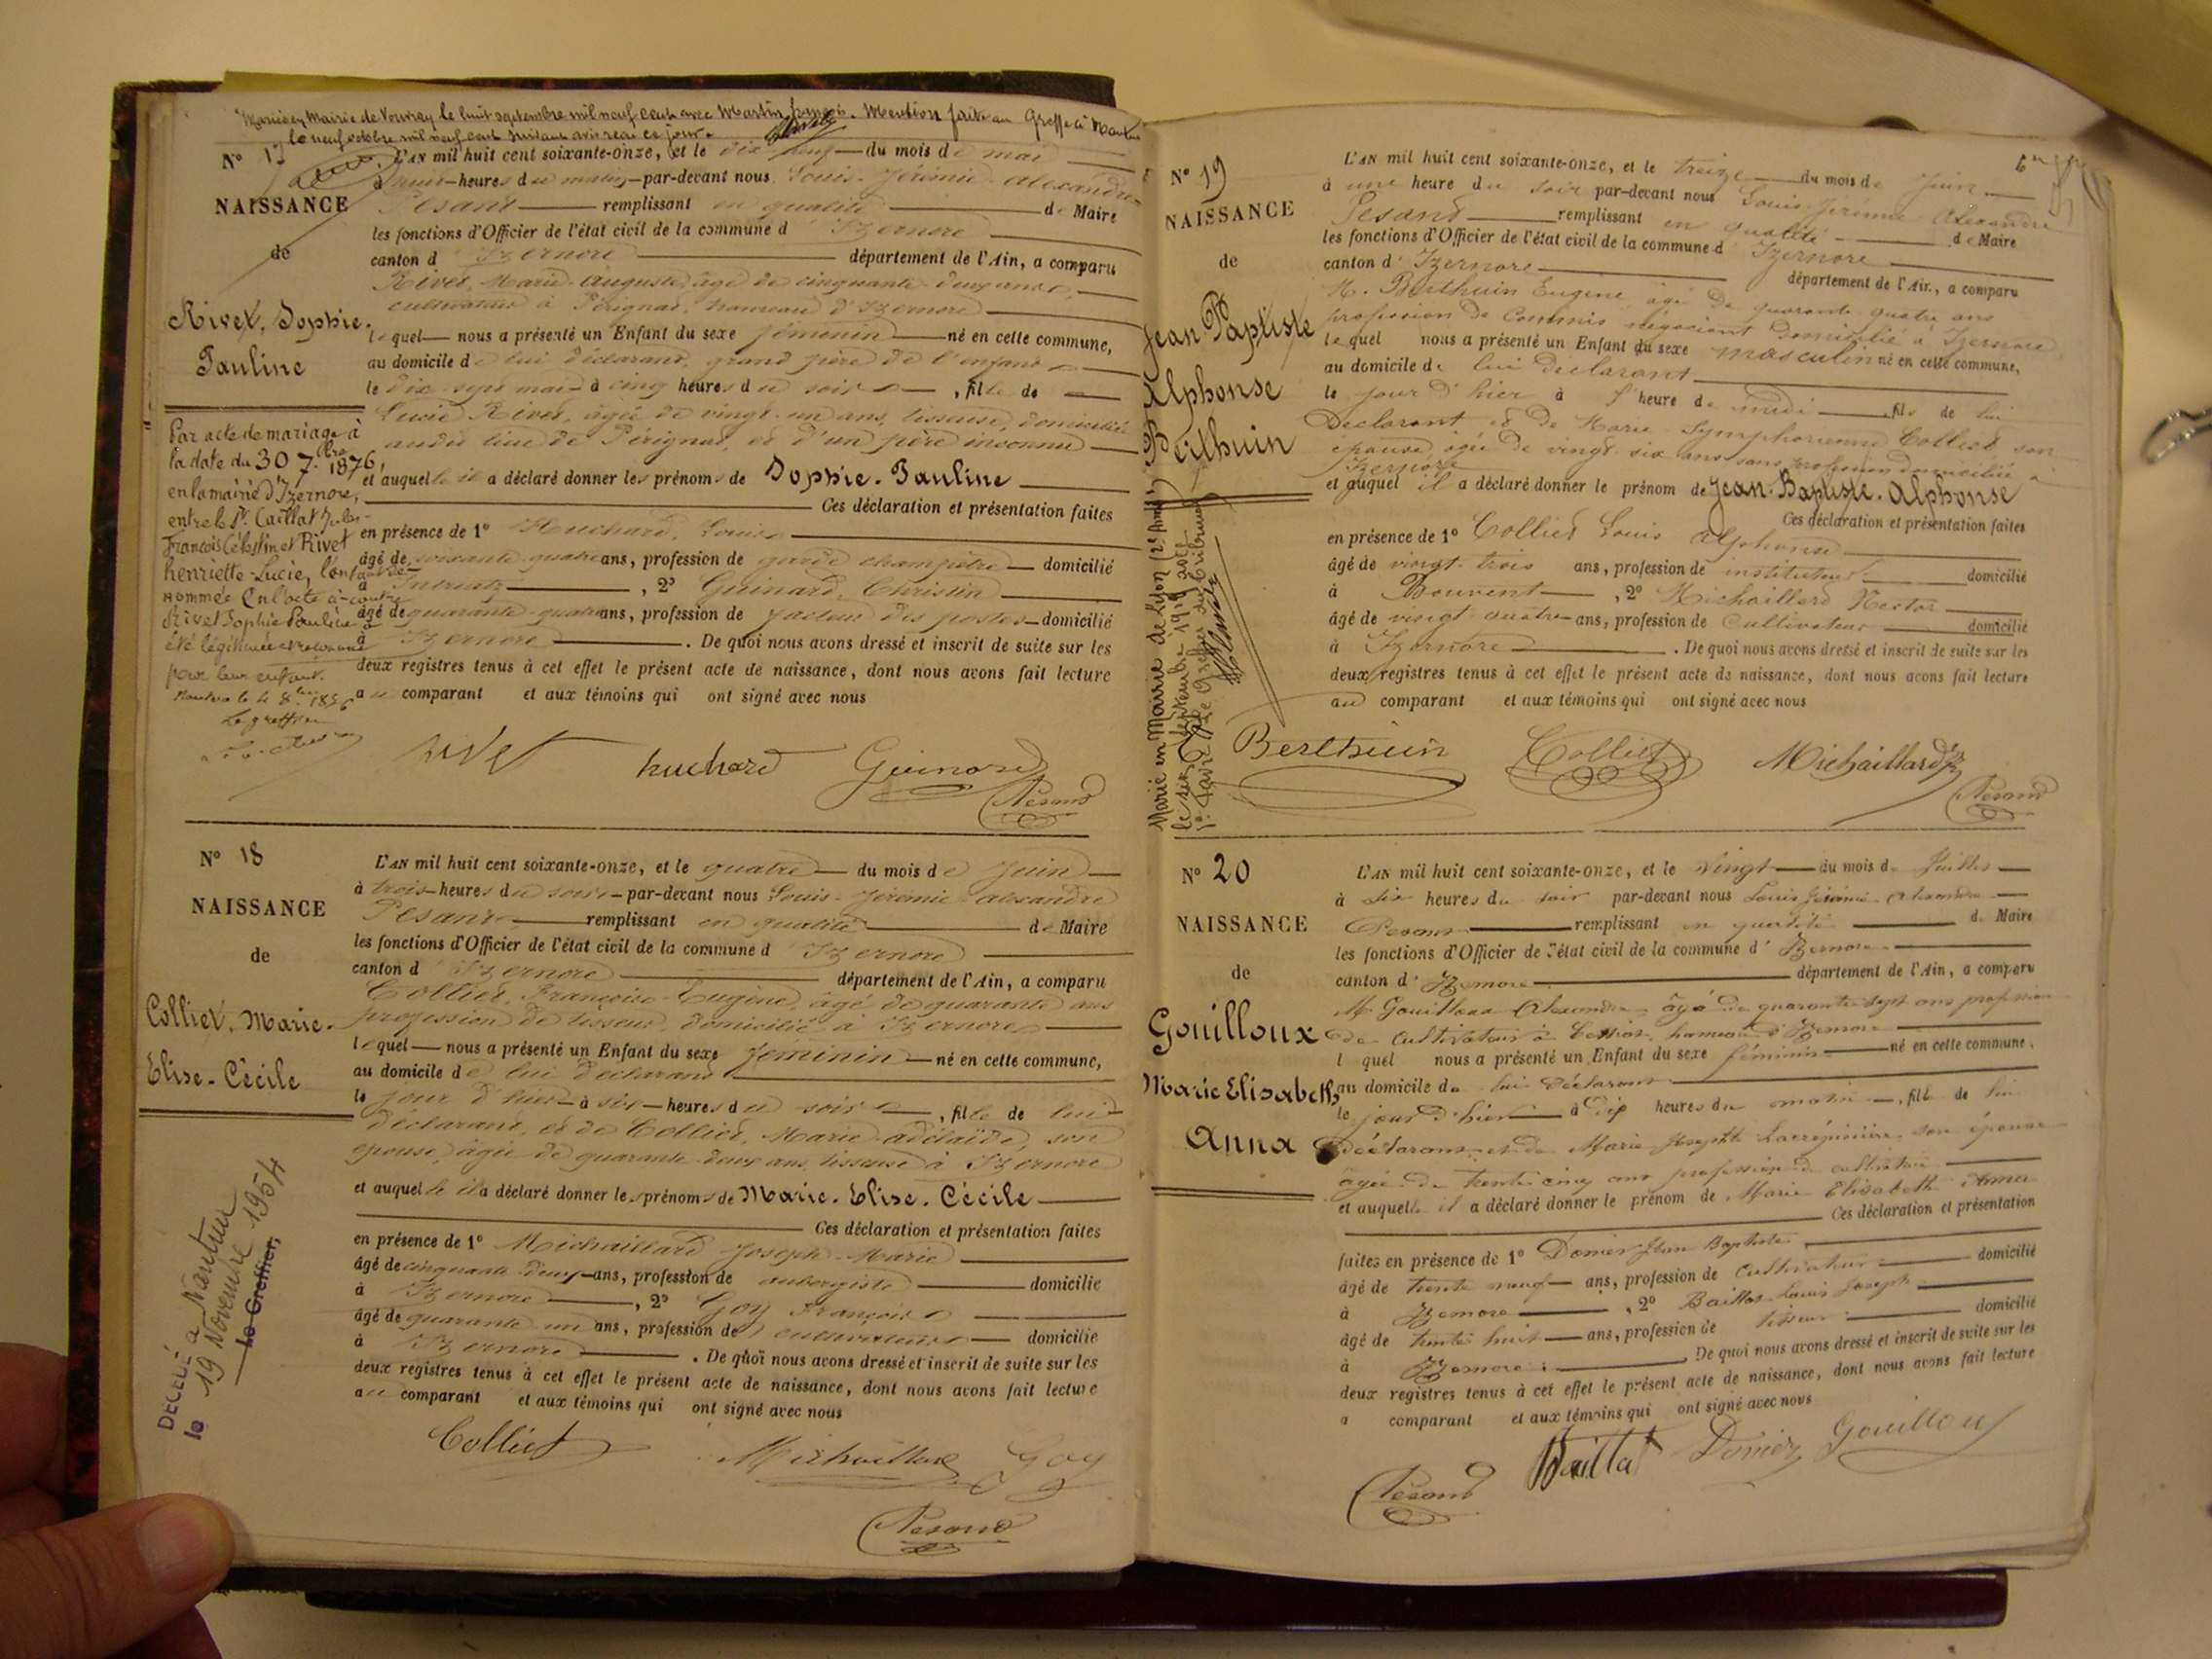 Mariée en Mairie de Vouvray le huit septembre mil neuf cent avec Martin françois. Mention faite au Greffe à Nantua
le neuf octobre mil neuf cent suivant avis reçu ce jour.
N° 17
NAISSANCE
de
Rivet, Sophie.
Pauline
Par acte de mariage à
la date du 30 7.bre 1876,
en la mairie d'Izernore,
entre le Sr. Caillat Jules-
François Célestin et Rivet
henriette-Lucie, l'enfant de-
nommée en l'acte ci-contre
Rivet Sophie Pauline a
été légitimée et reconnue
pour leur enfant.
Nantua le 4 8bre 1876
Le greffier
L'AN mil huit cent soixante-onze, et le dix neuf du mois de mai
à heures du matin par-devant nous Louis-Jérémie-Alexandre
Pesand remplissant en qualité de Maire
les fonctions d'Officier de l'état civil de la commune d Izernore
canton d Izernore département de l'Ain, a comparu
Rivet, Marie-Auguste, âgé de cinquante-deux ans,
cultivateur à Pérignat, hameau d'Izernore
lequel nous a présenté un Enfant du sexe féminin né en cette commune,
au domicile de lui déclarant, grand père de l'enfant
le dix-sept mai à cinq heures du soir, fille de
Lucie Rivet, âgée de vingt-un ans, tisseuse, domiciliée
audit lieu de Pérignat, et d'un père inconnu
et auquelle il a déclaré donner les prénoms de Sophie-Pauline
Ces déclaration et présentation faites
en présence de 1° Huchard, Louis
âgé de soixante-quatre ans, profession de garde champêtre domicilié
à , 2° Guinard, Christin
âgé de quarante-quatre ans, profession de facteur des postes domicilié
à Izernore . De quoi nous avons dressé et inscrit de suite sur les
deux registres tenus à cet effet le présent acte de naissance, dont nous avons fait lecture
au comparant et aux témoins qui ont signé avec nous
Rivet huchard Guinard
Pesand
N° 18
NAISSANCE
de
Colliet, Marie.
Elise-Cécile
DÉCÉDÉ à Nantua
le 19 Novembre 1954
Le Greffier,
L'AN mil huit cent soixante-onze, et le quatre du mois de Juin
à trois heures du soir par-devant nous Louis-Jérémie-alexandre
Pesand remplissant en qualité de Maire
les fonctions d'Officier de l'état civil de la commune d Izernore
canton d Izernore département de l'Ain, a comparu
Colliet, François-Eugène, âgé de quarante ans
profession de tisseur, domicilié à Izernore
lequel nous a présenté un Enfant du sexe féminin né en cette commune,
au domicile de lui déclarant
le jour d'hier à six heures du soir , fille de lui
déclarant, et de Colliet, Marie-adélaïde, son
épouse, âgée de quarante-deux ans, tisseuse à Izernore
et auquelle il a déclaré donner les prénoms de Marie-Elise-Cécile
Ces déclaration et présentation faites
en présence de 1° Michaillard Joseph-Marie
âgé de cinquante-deux ans, profession de aubergiste domicilié
à Izernore , 2° Goy François
âgé de quarante un ans, profession de cultivateur domicilié
à Izernore . De quoi nous avons dressé et inscrit de suite sur les
deux registres tenus à cet effet le présent acte de naissance, dont nous avons fait lecture
au comparant et aux témoins qui ont signé avec nous
Colliet Michaillard Goy
Pesand
N° 19
NAISSANCE
de
Jean-Baptiste
Alphonse
Berthuin
Marié en Mairie de Lyon
L'AN mil huit cent soixante-onze, et le treize du mois de Juin
à une heure du soir par-devant nous Louis-Jérémie Alexandre
Pesand remplissant en qualité de Maire
les fonctions d'Officier de l'état civil de la commune d' Izernore
canton d' Izernore département de l'Ain, a comparu
M. Berthuin Eugène âgé de quarante-quatre ans
profession de Commis négociant domicilié à Izernore
lequel nous a présenté un Enfant du sexe masculin né en cette commune,
au domicile de lui Déclarant
le jour d'hier à l'heure de midi fils de lui
Déclarant et de Marie-Symphorienne Colliet son
épouse, agée de vingt-six ans sans profession domiciliée à
Izernore
et auquel il a déclaré donner le prénom de Jean-Baptiste-Alphonse
Ces déclaration et présentation faites
en présence de 1° Colliet Louis Alphonse
âgé de vingt-trois ans, profession de instituteur domicilié
à Bouvent , 2° Michaillard Nestor
âgé de vingt-quatre ans, profession de Cultivateur domicilié
à Izernore . De quoi nous avons dressé et inscrit de suite sur les
deux registres tenus à cet effet le présent acte de naissance, dont nous avons fait lecture
au comparant et aux témoins qui ont signé avec nous
Berthuin Colliet Michaillard
Pesand
N° 20
NAISSANCE
de
Gouilloux
Marie Elisabeth
Anna
L'AN mil huit cent soixante-onze, et le vingt du mois de Juillet
à six heures du soir par-devant nous Louis Jérémie Alexandre
Pesand remplissant en qualité de Maire
les fonctions d'Officier de l'état civil de la commune d' Izernore
canton d' Izernore département de l'Ain, a comparu
M. Gouilloux Alexandre âgé de quarante sept ans profession
de Cultivateur à Cessiat hameau d'Izernore
l quel nous a présenté un Enfant du sexe féminin né en cette commune,
au domicile de lui déclarant
le jour d'hier à dix heures du matin , fille de lui
déclarant et de Marie Josephte son épouse
âgée de trente cinq ans profession de cultivatrice
et auquelle il a déclaré donner le prénom de Marie Elisabeth Anna
Ces déclaration et présentation
faites en présence de 1° Domier Jean Baptiste
âgé de trente neuf ans, profession de Cultivateur domicilié
à Izernore , 2° Baillat Louis Joseph
âgé de trente huit ans, profession de tisseur domicilié
à Izernore . De quoi nous avons dressé et inscrit de suite sur les
deux registres tenus à cet effet le présent acte de naissance, dont nous avons fait lecture
a comparant et aux témoins qui ont signé avec nous
Pesand Baillat Domier Gouilloux